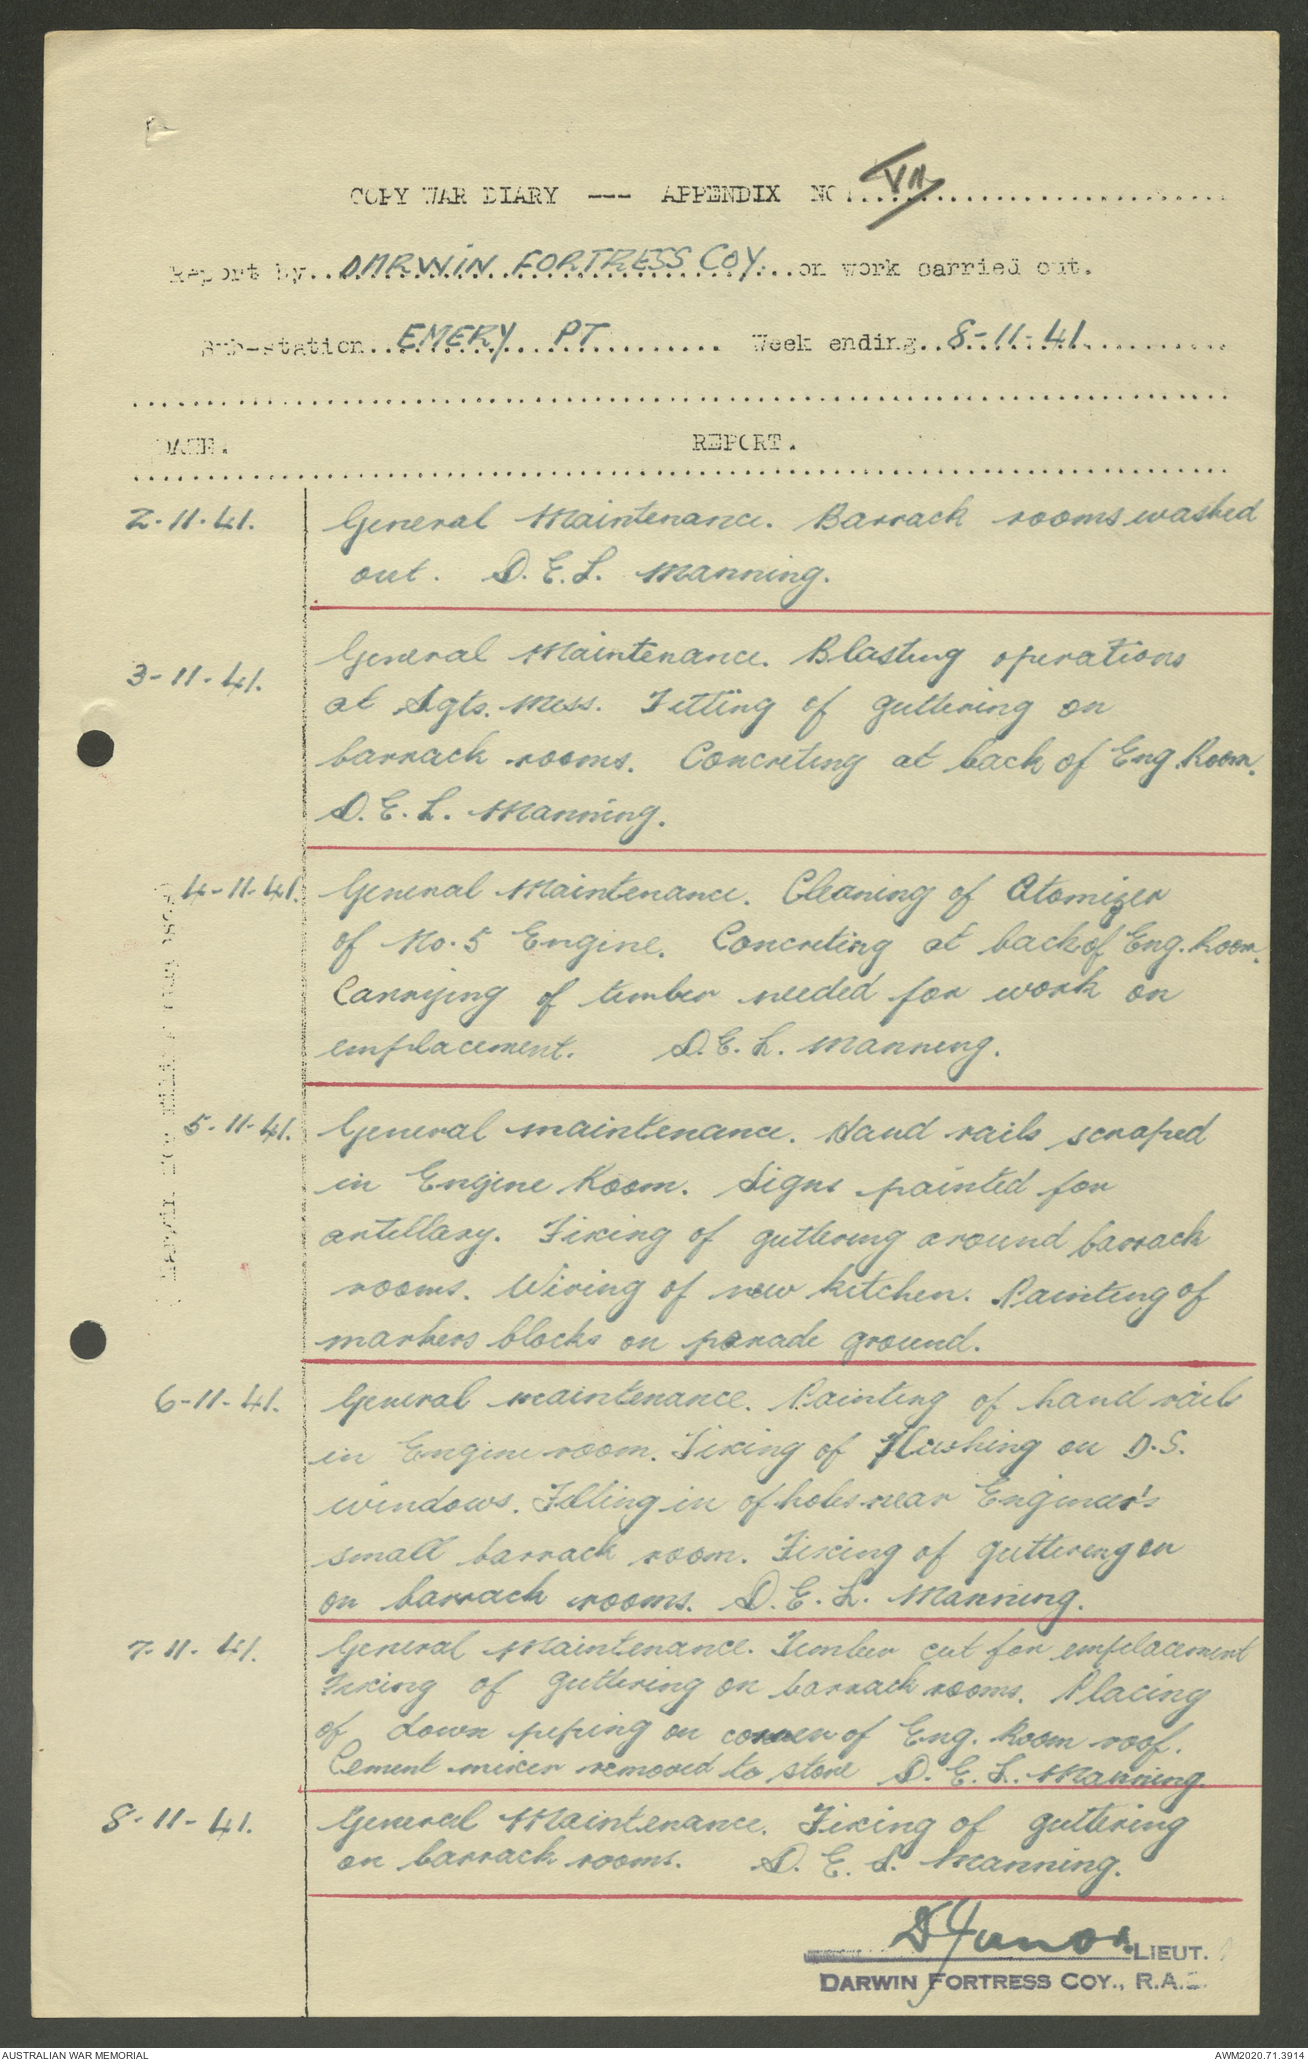 COPY WAR DIARY --- APPENDIX NO. VII
Report by.. DARWIN FORTRESS COY. ..on work carried out.
Sub-station.. EMERY PT .......... Week ending.. 8-11-41 ..........
DATE. REPORT.
2-11-41. General Maintenance. Barrack rooms washed
out. D.E.L. Manning.
3-11-41. General Maintenance. Blasting operations
at Sgts. Mess. Fitting of guttering on
barrack rooms. Concreting at back of Eng. Room.
D.E.L. Manning.
4-11-41. General Maintenance. Cleaning of Atomizer
of No. 5 Engine. Concreting at back of Eng. Room.
Carrying of timber needed for work on
emplacement. D.E.L. Manning.
5-11-41. General maintenance. Hand rails scraped
in Engine Room. Signs painted for
artillary. Fixing of guttering around barrack
rooms. Wiring of new kitchen. Painting of
markers blocks on parade ground.
6-11-41. General maintenance. Painting of hand rails
in Engine room. Fixing of flashing on D.S.
windows. Filling in of holes near Engineer's
small barrack room. Fixing of guttering on
on barrack rooms. D.E.L. Manning.
7-11-41. General Maintenance. Timber cut for emplacement
Fixing of guttering on barrack rooms. Placing
of down pipping on corner of Eng. Room roof.
Cement mixer removed to store D.E.L. Manning.
8-11-41. General Maintenance. Fixing of guttering
on barrack rooms. D.E.L. Manning.
LIEUT.
DARWIN FORTRESS COY., R.A.E.
AUSTRALIAN WAR MEMORIAL AWM2020.71.3914